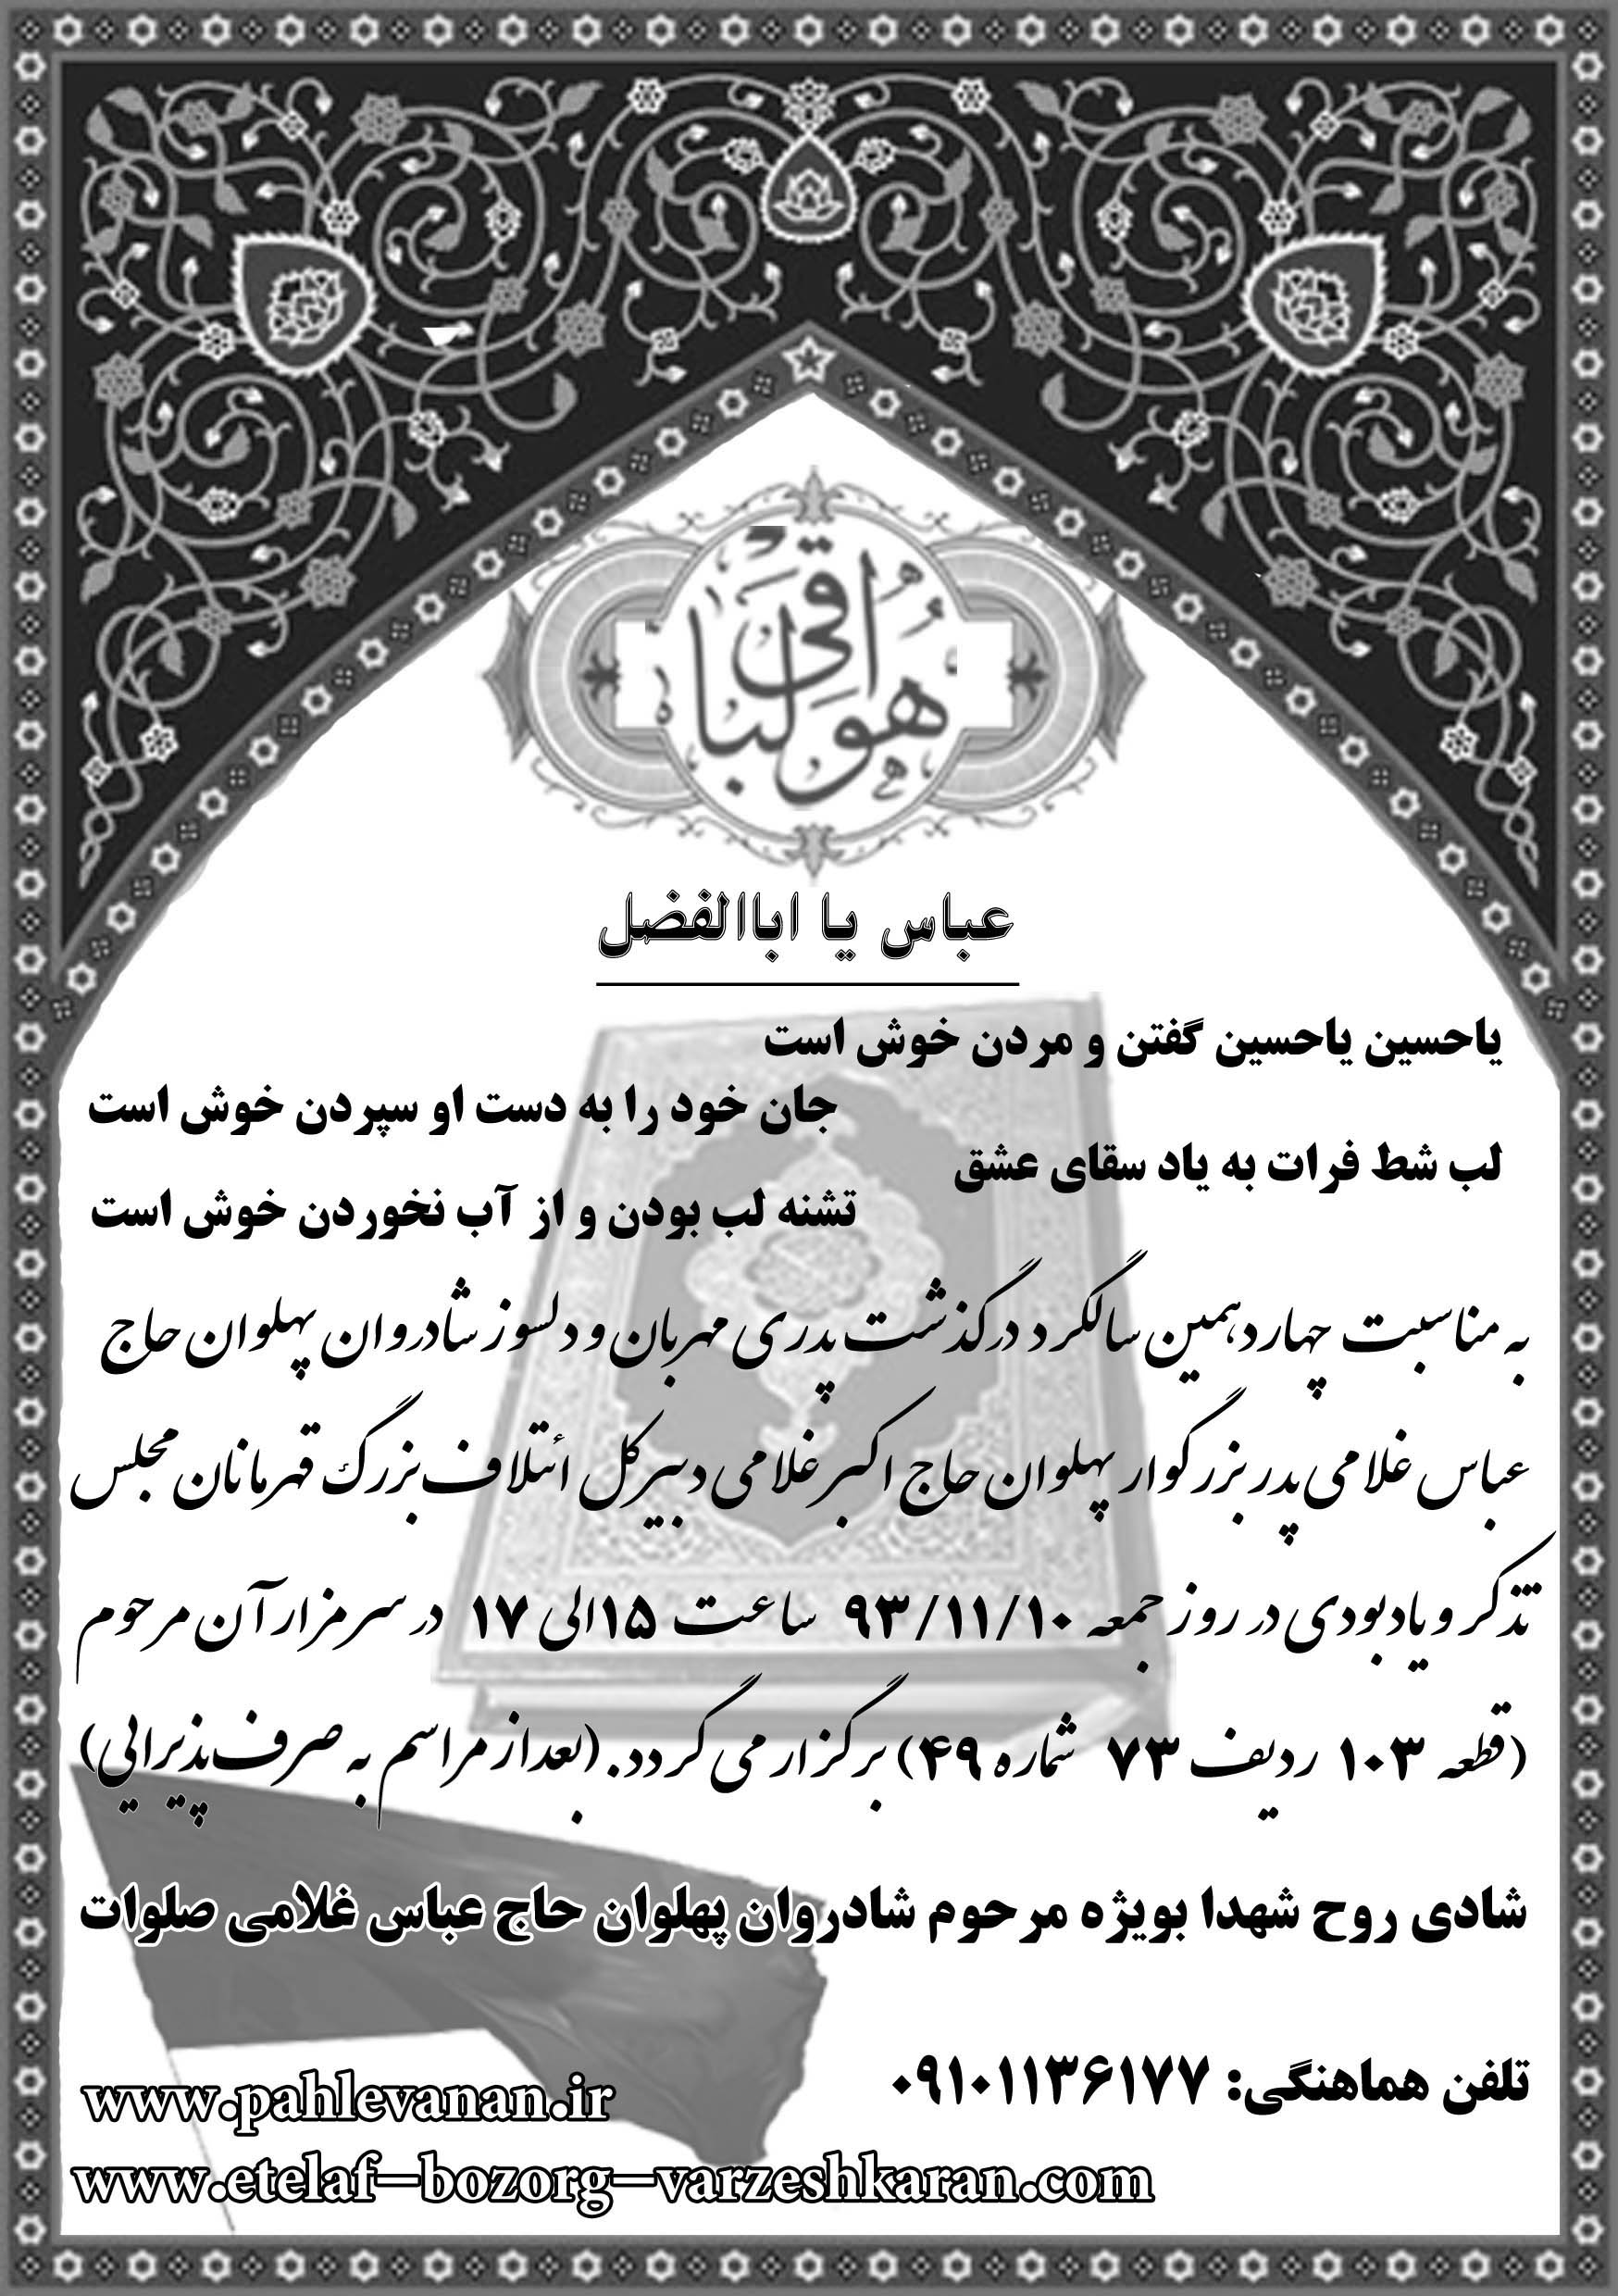 هوالباقی
عباس یا اباالفضل
یاحسین یاحسین گفتن و مردن خوش است
جان خود را به دست او سپردن خوش است
لب شط فرات به یاد سقای عشق
تشنه لب بودن و از آب نخوردن خوش است
به مناسبت چهاردهمین سالگرد درگذشت پدری مهربان و دلسوز شادروان پهلوان حاج
عباس غلامی پدر بزرگوار پهلوان حاج اکبر غلامی دبیرکل ائتلاف بزرگ قهرمانان مجلس
تذکر و یادبودی در روز جمعه ۹۳/۱۱/۱۰ ساعت ۱۵الی ۱۷ در سر مزار آن مرحوم
(قطعه ۱۰۳ ردیف ۷۳ شماره ۴۹) برگزار می گردد. (بعد از مراسم به صرف پذیرایی)
شادی روح شهدا بویژه مرحوم شادروان پهلوان حاج عباس غلامی صلوات
تلفن هماهنگی: ۰۹۱۰۱۱۳۶۱۷۷
www.pahlevanan.ir
www.etelaf-bozorg-varzeshkaran.com